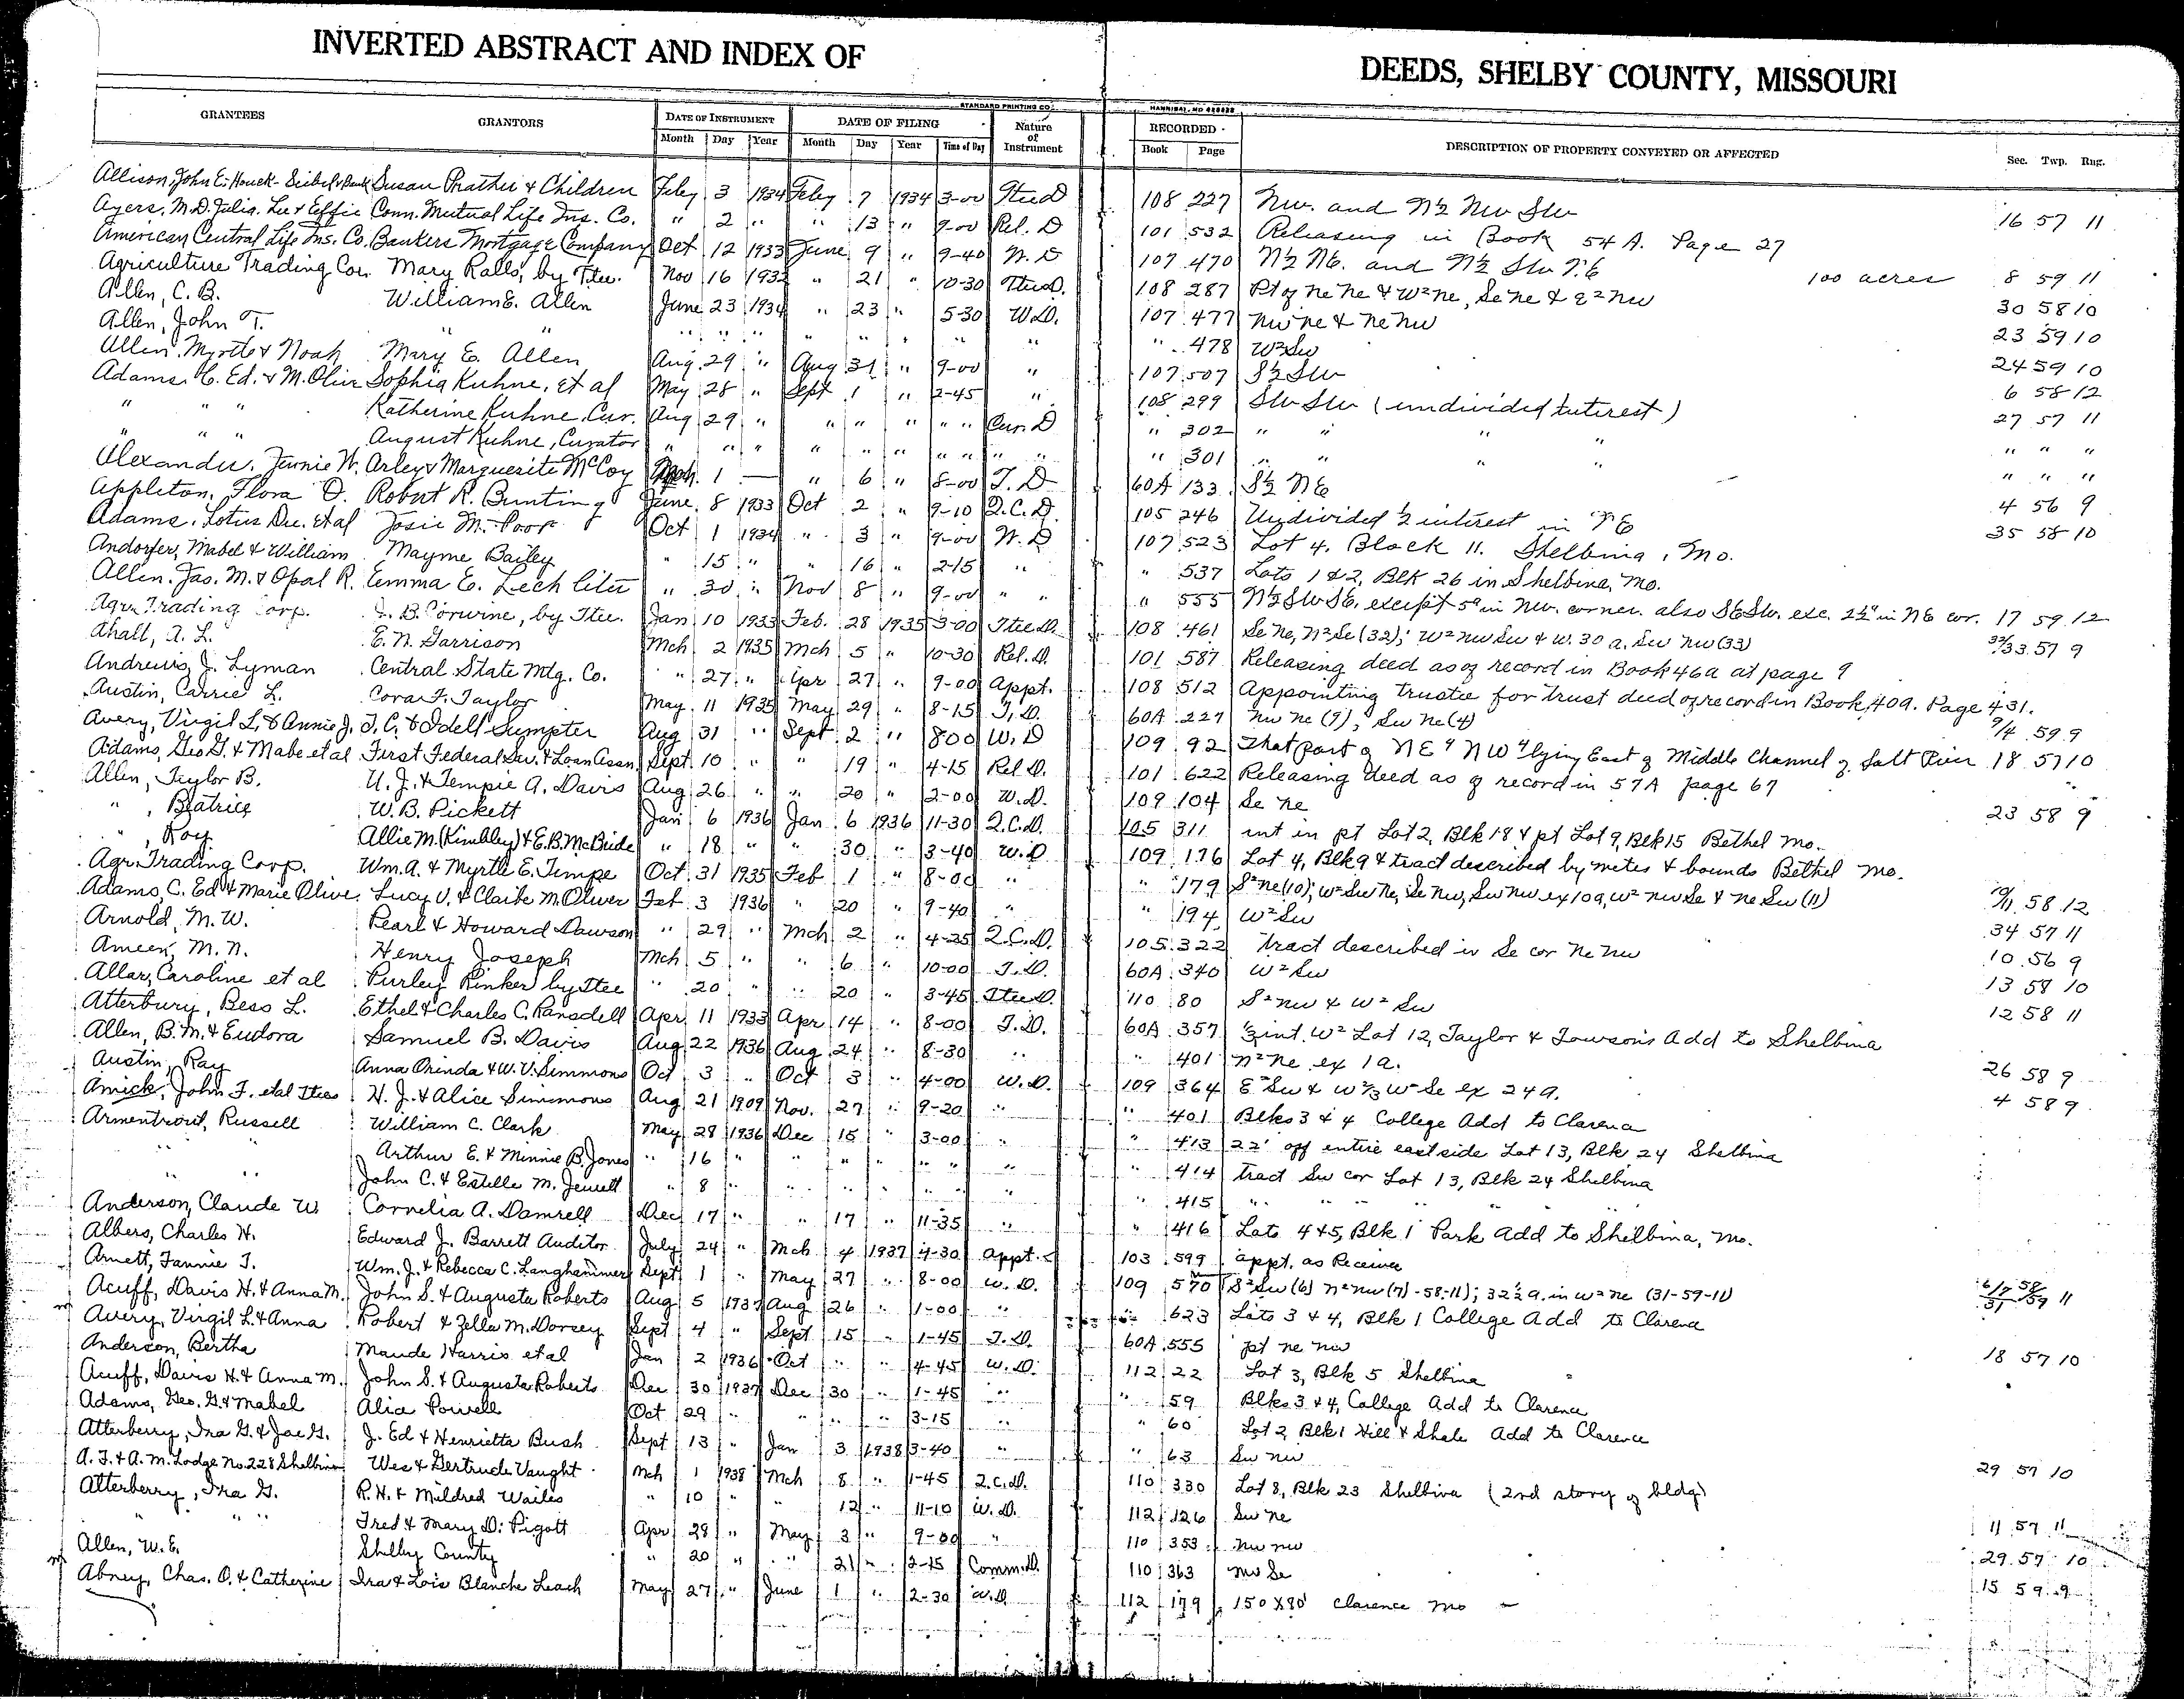 INVERTED ABSTRACT AND INDEX OF DEEDS, SHELBY COUNTY, MISSOURI
STANDARD PRINTING CO. HANNIBAL, MO
GRANTEES GRANTORS DATE OF INSTRUMENT DATE OF FILING Nature of Instrument RECORDED DESCRIPTION OF PROPERTY CONVEYED OR AFFECTED Sec. Twp. Rng.
Month Day Year Month Day Year Time of Day Book Page
Allison, John E. Houck - Susan Prather & Children Feby 3 1934 Feby 7 1934 3-00 Tteed 108 227 Nw. and N½ Nw Sw 16 57 11
Ayers, M.D. Julia. Lee & Effie Conn. Mutual Life Ins. Co. " 2 " " 13 " 9-00 Rel. D 101 532 Releasing in Book 54 A. Page 27
American Central Life Ins. Co. Bankers Mortgage Company Oct 12 1933 June 9 " 9-40 W. D 107 470 N½ NE. and N½ Sw NE 100 acres 8 59 11
Agriculture Trading Cor. Mary Ralls, by Ttee. Nov 16 1932 " 21 " 10-30 TteeD. 108 287 Pt of ne ne & W²ne, Se ne & E²nw 30 58 10
Allen, C. B. William E. Allen June 23 1934 " 23 " 5-30 W.D. 107 477 nw ne & ne nw 23 59 10
Allen, John T. " " " " " " " " " " " 478 W²Sw 24 59 10
Allen, Myrtle & Noah Mary E. Allen Aug 29 " Aug 31 " 9-00 " 107 507 S½ Sw 6 58 12
Adams, C. Ed. & M. Olive Sophia Kuhne, et al May 28 " Sept 1 " 2-45 " 108 299 Sw Sw (undivided interest) 27 57 11
" " " Katherine Kuhne, Cur. Aug 29 " " " " " " Cur. D " 302 " " " " " " "
" " " August Kuhne, Curator " " " " " " " " " " " 301 " " " " " " "
Alexander, Jennie W. Arley & Marguerite McCoy Mch. 1 — " 6 " 8-00 T. D 60A 133 S½ NE 4 56 9
Appleton, Flora O. Robert R. Bunting June 8 1933 Oct 2 " 9-10 Q.C.D. 105 246 Undivided ½ interest in NE 35 58 10
Adams, Lotus Dee. et al Josie M. Poor Oct 1 1934 " 3 " 9-00 W. D 107 523 Lot 4, Block 11. Shelbina, Mo.
Andorfer, Mabel & William Mayme Bailey " 15 " " 16 " 2-15 " " 537 Lots 1 & 2, Blk 26 in Shelbina, Mo.
Allen, Jas. M. & Opal R. Emma E. Lechliter " 30 " Nov 8 " 9-00 " " " 555 N½ Sw SE. except 5ª in Nw. corner. also SE Sw. exc. 2½ª in NE cor. 17 59 12
Agr. Trading Corp. J. B. Corwine, by Ttee. Jan 10 1933 Feb. 28 1935 3-00 Ttee D. 108 461 Se ne, N²Se (32); W²nw Sw & W. 30 a. Sw nw (33) 32/33 57 9
Ahalt, A. L. E. N. Garrison Mch 2 1935 Mch 5 " 10-30 Rel. D. 101 587 Releasing deed as of record in Book 46a at page 9
Andrews, J. Lyman Central State Mtg. Co. " 27 " Apr 27 " 9-00 Appt. 108 512 Appointing trustee for trust deed of record in Book 40a. Page 431.
Austin, Carrie L. Cora F. Taylor May 11 1935 May 29 " 8-15 T. D. 60A 227 nw ne (9); Sw ne (4) 9/4 59 9
Avery, Virgil L. & Annie J. T. C. & Idell Sumpter Aug 31 " Sept 2 " 800 W. D 109 92 That part of NE⁴ NW⁴ lying East of Middle Channel of Salt River 18 57 10
Adams, Geo G. & Mabel et al First Federal Sav. & Loan Assn. Sept. 10 " " 19 " 4-15 Rel D. 101 622 Releasing deed as of record in 57A page 67
Allen, Taylor B. U. J. & Tempie A. Davis Aug 26 " " 20 " 2-00 W.D. 109 104 Se ne 23 58 9
" , Beatrice W. B. Pickett Jan 6 1936 Jan 6 1936 11-30 Q.C.D. 105 311 int in pt Lot 2, Blk 18 & pt Lot 9, Blk 15 Bethel Mo.
" , Roy Allie M. (Kimbley) & E.B. McBride " 18 " " 30 " 3-40 W.D 109 176 Lot 4, Blk 9 & tract described by metes & bounds Bethel Mo.
Agr. Trading Corp. Wm. A. & Myrtle E. Timpe Oct 31 1935 Feb 1 " 8-00 " " 179 S²ne (10); W²Sw Ne, Se Nw, Sw Nw ex 10a, W² nw Se & ne Sw (11) 10/11 58 12
Adams, C. Ed & Marie Olive Lucy V. & Claibe M. Oliver Feb 3 1936 " 20 " 9-40 " " 194 W²Sw 34 57 11
Arnold, M. W. Pearl & Howard Dawson " 29 " Mch 2 " 4-25 Q.C.D. 105 322 tract described in Se cor Ne Nw 10 56 9
Ameen, M. N. Henry Joseph Mch 5 " " 6 " 10-00 T.D. 60A 340 W²Sw 13 58 10
Allar, Caroline et al Purley Rinker by Ttee " 20 " " 20 " 3-45 Ttee D. 110 80 S²nw & W² Sw 12 58 11
Atterbury, Bess L. Ethel & Charles C. Ransdell Apr 11 1933 Apr 14 " 8-00 T.D. 60A 357 ⅓ int. W² Lot 12, Taylor & Towson's Add to Shelbina
Allen, B. M. & Eudora Samuel B. Davis Aug 22 1936 Aug 24 " 8-30 " " 401 N²ne ex 1a. 26 58 9
Austin, Ray Anna Orinda & W. V. Simmons Oct 3 " Oct 3 " 4-00 W.D. 109 364 E²Sw & W⅔ W² Se ex 24a. 4 58 9
Amick, John F. et al Ttees H. J. & Alice Simmons Aug 21 1909 Nov. 27 " 9-20 " " 401 Blks 3 & 4 College Add to Clarence
Armentrout, Russell William C. Clark May 28 1936 Dec 15 " 3-00 " " 413 22' off entire east side Lot 13, Blk 24 Shelbina
" " Arthur E. & Minnie B. Jones " 16 " " " " " " " " 414 tract Sw cor Lot 13, Blk 24 Shelbina
" " John C. & Estella M. Jewett " 8 " " " " " " " " 415 " " " "
Anderson, Claude W Cornelia A. Damrell Dec 17 " " 17 " 11-35 " " 416 Lots 4 & 5, Blk 1 Park Add to Shelbina, Mo.
Albers, Charles H. Edward J. Barrett Auditor July 24 " Mch 4 1937 4-30 Appt. 103 599 appt. as Receiver
Arnett, Fannie T. Wm. J. & Rebecca C. Langhammer Sept 1 " May 27 " 8-00 W.D. 109 570 S²Sw (6) N²nw (7) -58-11); 32½ a. in W²ne (31-59-11) 6/7 58/ 31 /59 11
Acuff, Davis H. & Anna M. John S. & Augusta Roberts Aug 5 1937 Aug 26 " 1-00 " " 623 Lots 3 & 4, Blk 1 College Add to Clarence
Avery, Virgil L. & Anna Robert & Zella M. Dorsey Sept 4 " Sept 15 " 1-45 T.D. 60A 555 pt ne nw 18 57 10
Anderson, Bertha Maude Harris et al Jan 2 1936 Oct " " 4-45 W.D. 112 22 Lot 3, Blk 5 Shelbina
Acuff, Davis H. & Anna M. John S. & Augusta Roberts Dec 30 1937 Dec 30 " 1-45 " " 59 Blks 3 & 4, College Add to Clarence
Adams, Geo. G. & Mabel Alice Powell Oct 29 " " " " 3-15 " " 60 Lot 2, Blk 1 Hill & Shale Add to Clarence
Atterberry, Ira G. & Joe G. J. Ed & Henrietta Bush Sept 13 " Jan 3 1938 3-40 " " 63 Sw nw 29 57 10
A. F. & A. M. Lodge No. 228 Shelbina Wes & Gertrude Vaught Mch 1 1938 Mch 8 " 1-45 Q.C.D. 110 330 Lot 8, Blk 23 Shelbina (2nd story of bldg)
Atterberry, Ira G. R. H. & Mildred Wailes " 10 " " 12 " 11-10 W.D. 112 126 Sw ne 11 57 11
" " " Fred & Mary D. Pigott Apr 28 " May 3 " 9-00 " 110 353 nw nw 29 57 10
Allen, W. E. Shelby County " 20 " " 21 " 2-15 Comm. D. 110 363 nw Se 15 59 9
Abney, Chas. O. & Catherine Ira & Lois Blanche Leach May 27 " June 1 " 2-30 W.D 112 179 150 X 90' Clarence Mo —